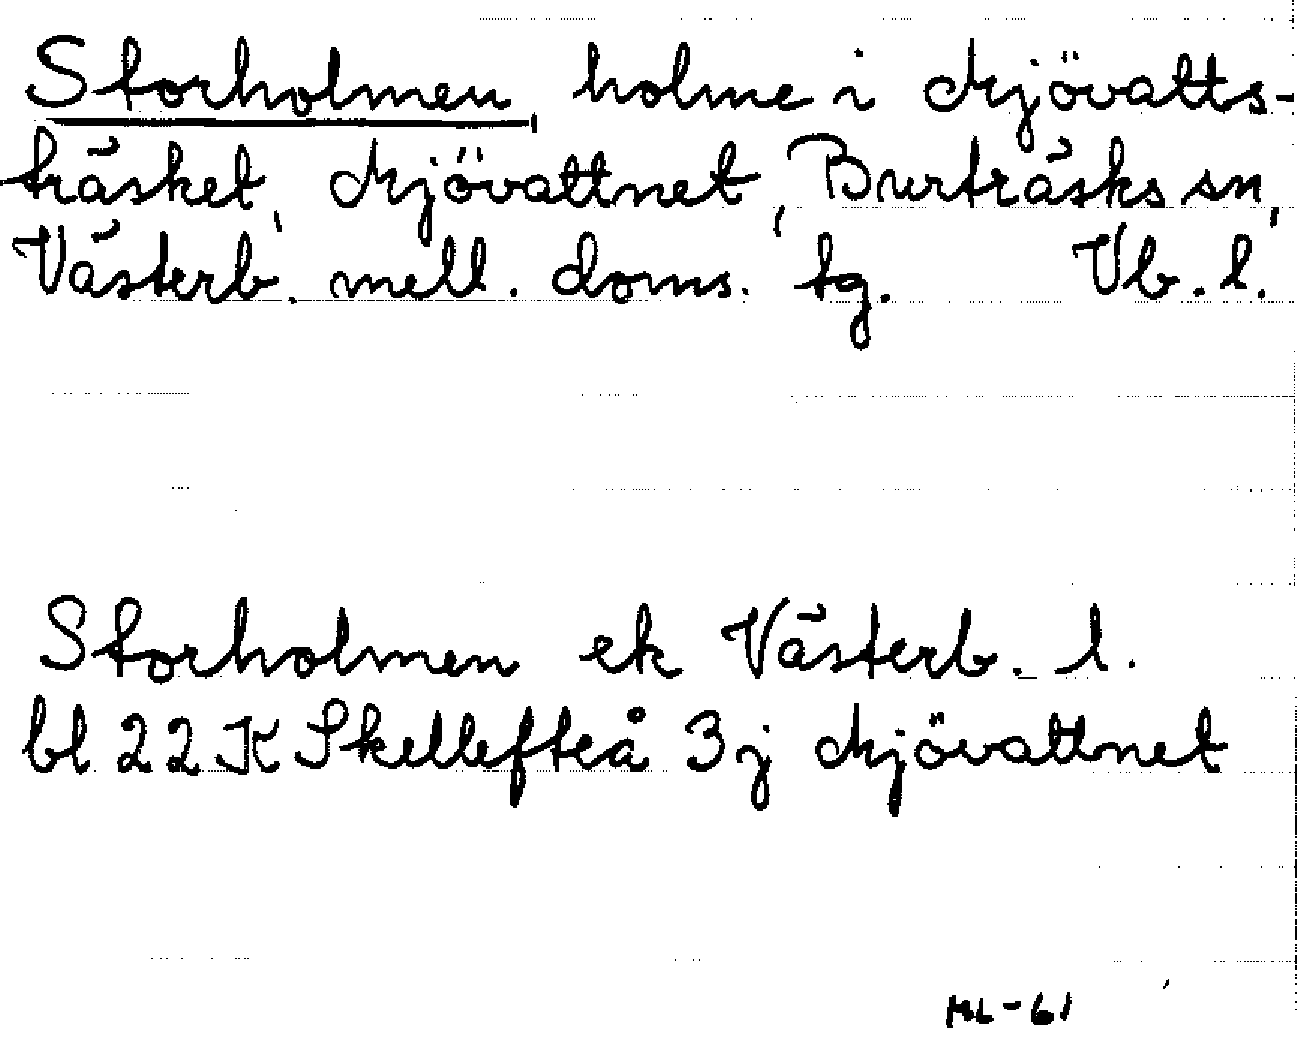 Storholmen, holme i Mjövatts-
träsket, Mjövattnet, Burträsks sn,
Västerb. mell. doms. tg. Vb. l.
Storholmen ek Västerb. l.
bl 22 K Skellefteå 3 j Mjövattnet
ML-61